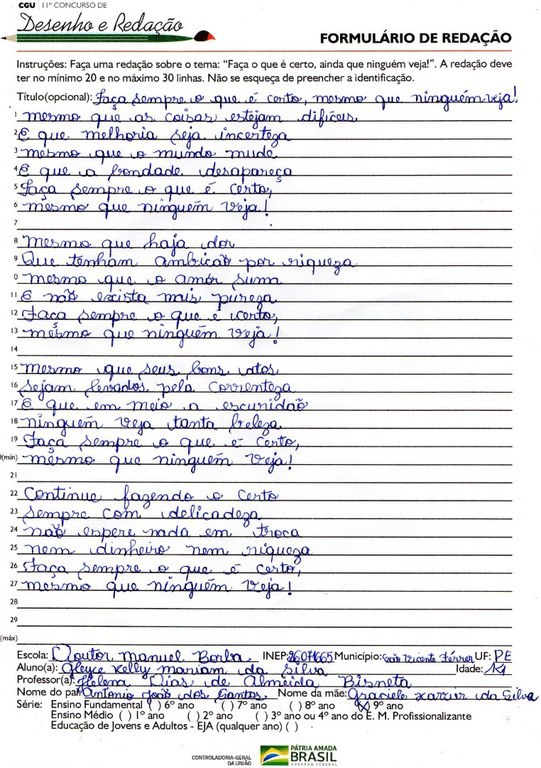 CGU | 11º CONCURSO DE
Desenho e Redação
FORMULÁRIO DE REDAÇÃO
Instruções: Faça uma redação sobre o tema: "Faça o que é certo, ainda que ninguém veja!". A redação deve
ter no mínimo 20 e no máximo 30 linhas. Não se esqueça de preencher a identificação.
Título(opcional): Faça sempre o que é certo, mesmo que ninguém veja!
1 mesmo que as coisas estejam difíceis
2 E que melhoria seja incerteza
3 mesmo que o mundo mude
4 E que a bondade desapareça
5 Faça sempre o que é certo,
6 mesmo que ninguém veja!
7
8 mesmo que haja dor
9 Que tenham ambição por riqueza
0 mesmo que o amor suma
11 E não exista mais pureza
12 Faça sempre o que é certo,
13 mesmo que ninguém veja!
14
15 mesmo que seus bons atos
16 sejam levados pela correnteza
17 E que em meio a escuridão
18 ninguém veja tanta beleza
19 Faça sempre o que é certo,
(min) mesmo que ninguém veja!
21
22 Continue fazendo o certo
23 sempre com delicadeza
24 não espere nada em troca
25 nem dinheiro nem riqueza
26 Faça sempre o que é certo,
27 mesmo que ninguém veja!
28
29
(máx)
Escola: Doutor manuel Borba. INEP: 26071665 Município: São Vicente Férrer UF: PE
Aluno(a): Gleyce Kelly mariam da silva Idade: 14
Professor(a): Helena Dias de Almeida Bisneta
Nome do pai: Antonio João dos Santos. Nome da mãe: Graciele xavier da Silva
Série: Ensino Fundamental ( ) 6º ano ( ) 7º ano ( ) 8º ano (X) 9º ano
Ensino Médio ( ) 1º ano ( ) 2º ano ( ) 3º ano ou 4º ano do E. M. Profissionalizante
Educação de Jovens e Adultos - EJA (qualquer ano) ( )
CONTROLADORIA-GERAL
DA UNIÃO
PÁTRIA AMADA
BRASIL
GOVERNO FEDERAL